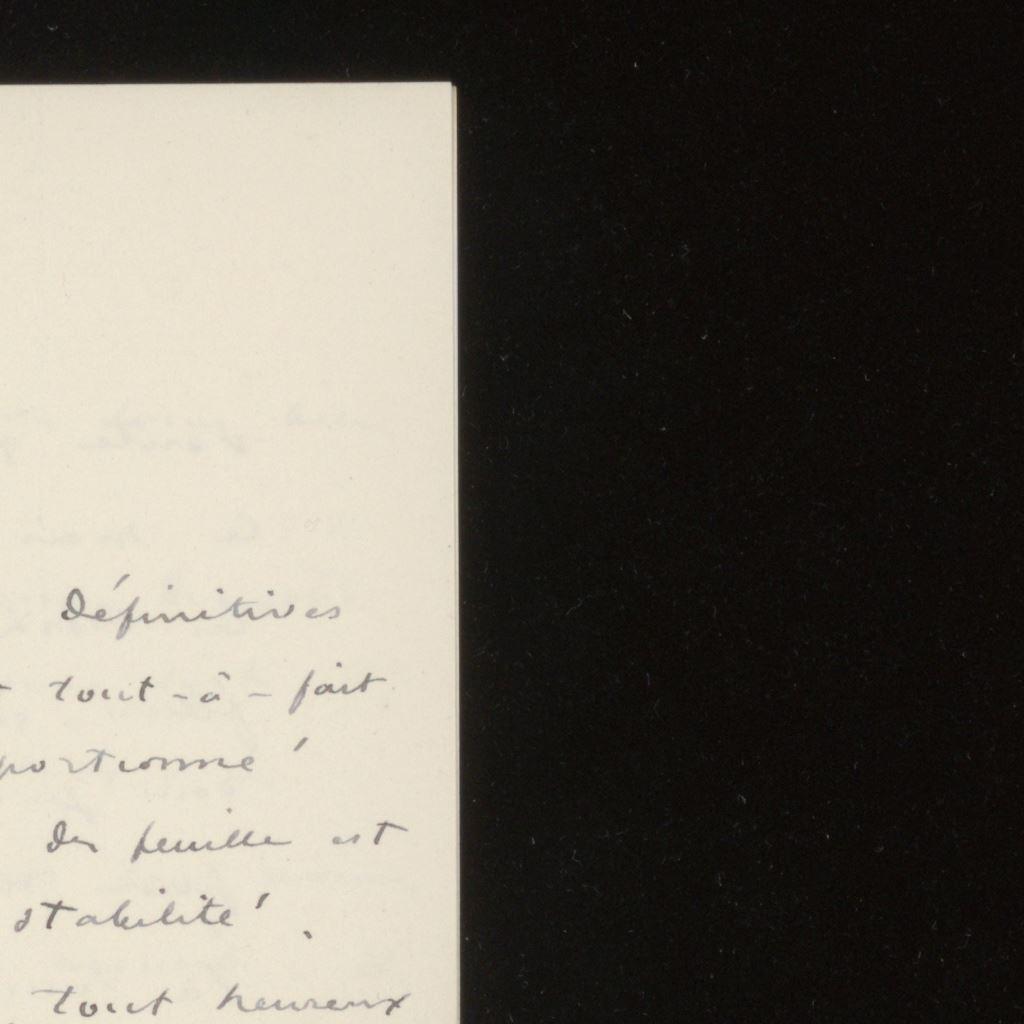 définitives
tout-à-fait
portionné
des feuille est
stabilité.
tout heureux